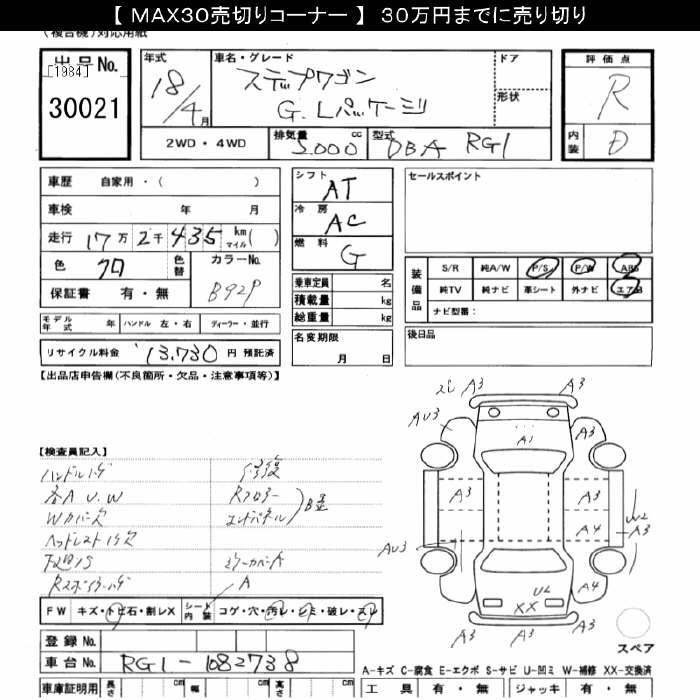 【 MAX30売切りコーナー 】 30万円までに売り切り
(複合機)対応用紙
出品No.
[1984]
30021
年式
18/4月
車名・グレード
ステップワゴン
G.Lパッケージ
ドア
形状
評価点
R
内装
D
2WD・4WD
排気量
2,000 cc
型式
DBA RG1
車歴 自家用・( )
車検 年 月
走行 17万2千435 km マイル( )
色 クロ
色替
カラーNo.
B92P
保証書 有・無
シフト
AT
冷房
AC
燃料
G
乗車定員 名
積載量 kg
総重量 kg
セールスポイント
装備品
S/R 純A/W P/S P/W ABS
純TV 純ナビ 革シート 外ナビ エアB
ナビ型番:
モデル年式 年 ハンドル 左・右 ディーラー・並行
名変期限
月 日
後日品
リサイクル料金 13,730 円 預託済
【出品店申告欄(不良箇所・欠品・注意事項等)】
【検査員記入】
ハンドルハゲ
各A U.W
Wカバーキズ
修復
Rフロアー
エンドパネル
B歪
ミラーカバーA
A
A3
A3
AU3
A3
A1
A3
A3
A4
U2
A3
AU3
A4
U2
XX
A3
A3
A3
FW キズ・トビ石・割レX
シート内装 コゲ・穴・汚レ・シミ・破レ・スレ
登録No.
車台No. RG1-1082738
スペア
A-キズ C-腐食 E-エクボ S-サビ U-凹ミ W-補修 XX-交換済
車庫証明用 長さ cm 幅 cm 高さ cm
工具 有・無 ジャッキ 有・無